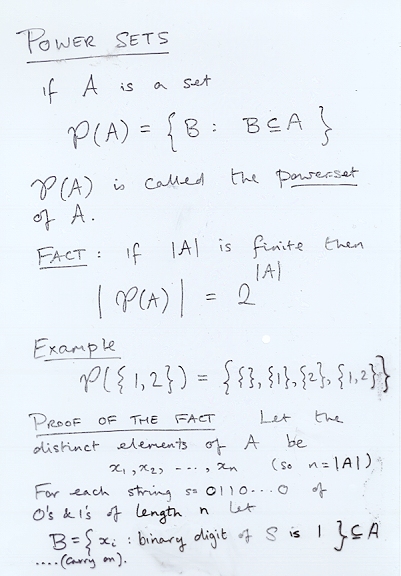 POWER SETS
if A is a set
P(A) = { B : B ⊆ A }
P(A) is called the powerset
of A.
FACT : if |A| is finite then
| P(A) | = 2^|A|
Example
P({1,2}) = { {}, {1}, {2}, {1,2} }
PROOF OF THE FACT Let the
distinct elements of A be
x₁, x₂, ---, xₙ (so n = |A|)
For each string s = 0110...0 of
0's & 1's of length n let
B = { xᵢ : binary digit of S is 1 } ⊆ A
....(carry on).